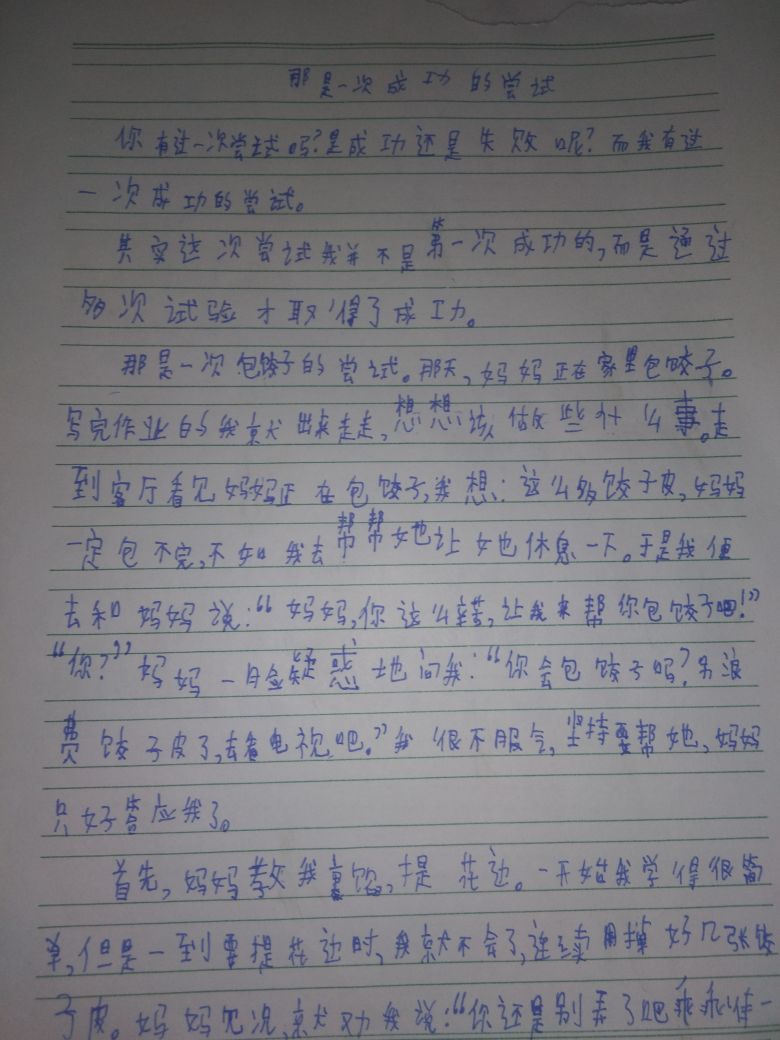 那是一次成功的尝试
你有过一次尝试吗？是成功还是失败呢？而我有过
一次成功的尝试。
其实这次尝试我并不是第一次成功的，而是通过
多次试验才取得了成功。
那是一次包饺子的尝试。那天，妈妈正在家里包饺子。
写完作业的我就出来走走，想想该做些什么事。走
到客厅看见妈妈正在包饺子，我想：这么多饺子皮，妈妈
一定包不完，不如我去帮帮她让她休息一下。于是我便
去和妈妈说：“妈妈，你这么辛苦，让我来帮你包饺子吧！”
“你？”妈妈一脸疑惑地问我：“你会包饺子吗？别浪
费饺子皮了，去看电视吧。”我很不服气，坚持要帮她，妈妈
只好答应我了。
首先，妈妈教我裹馅，提花边。一开始我学得很简
单，但是一到要提花边时，我就不会了，连续用掉好几张饺
子皮。妈妈见况，就劝我说：“你还是别弄了吧乖乖一